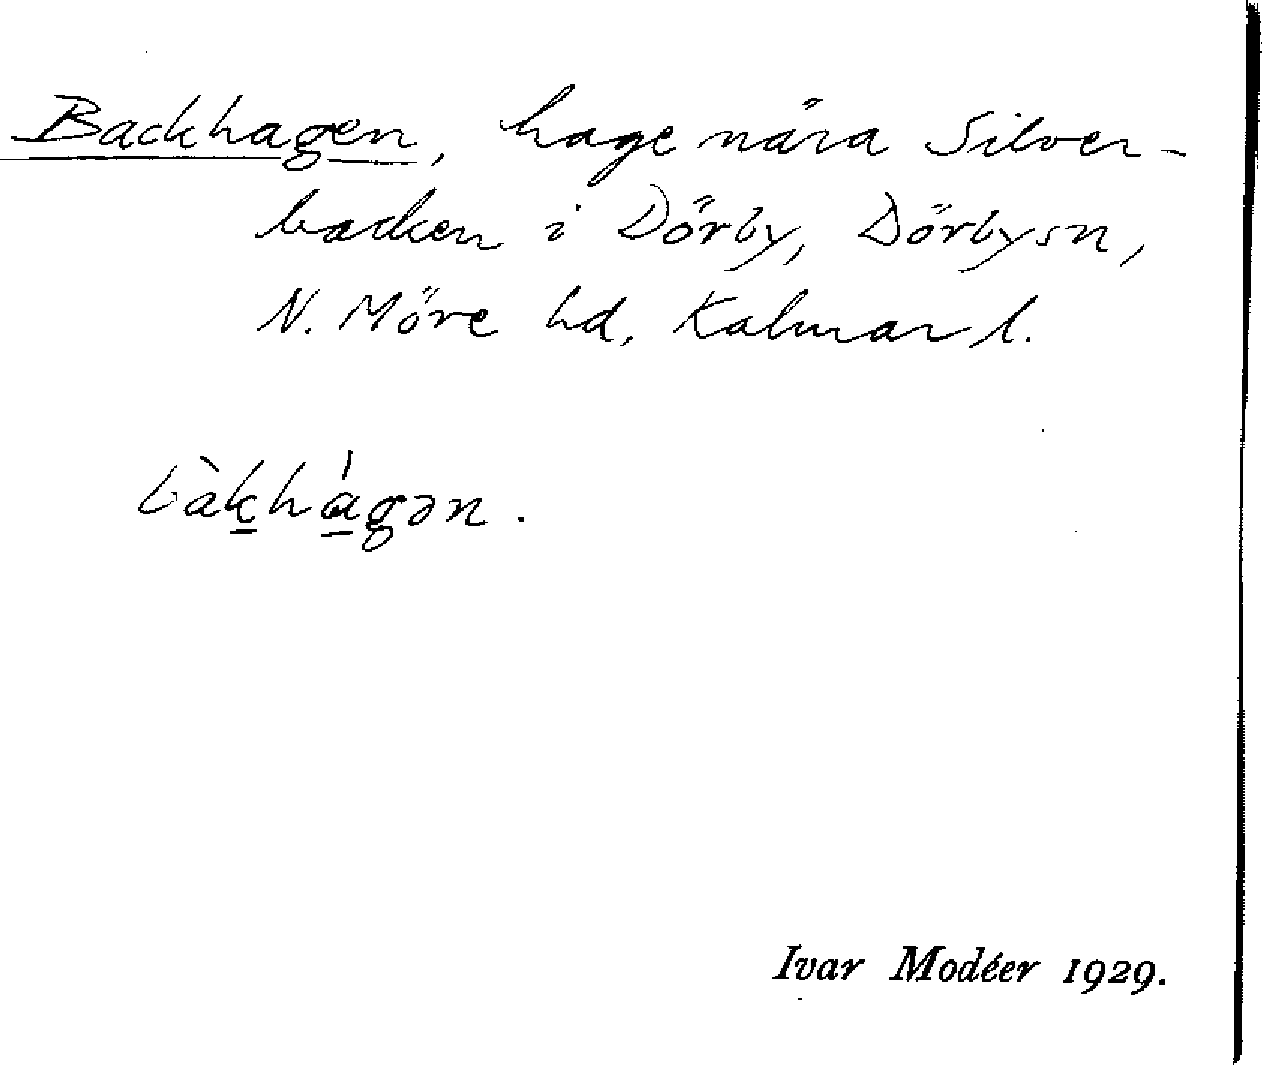 Backhagen, hage nära Silver-
backen i Dörby, Dörbysn,
N. Möre hd, Kalmar l.
bàk̲há̲gən.
Ivar Modéer 1929.